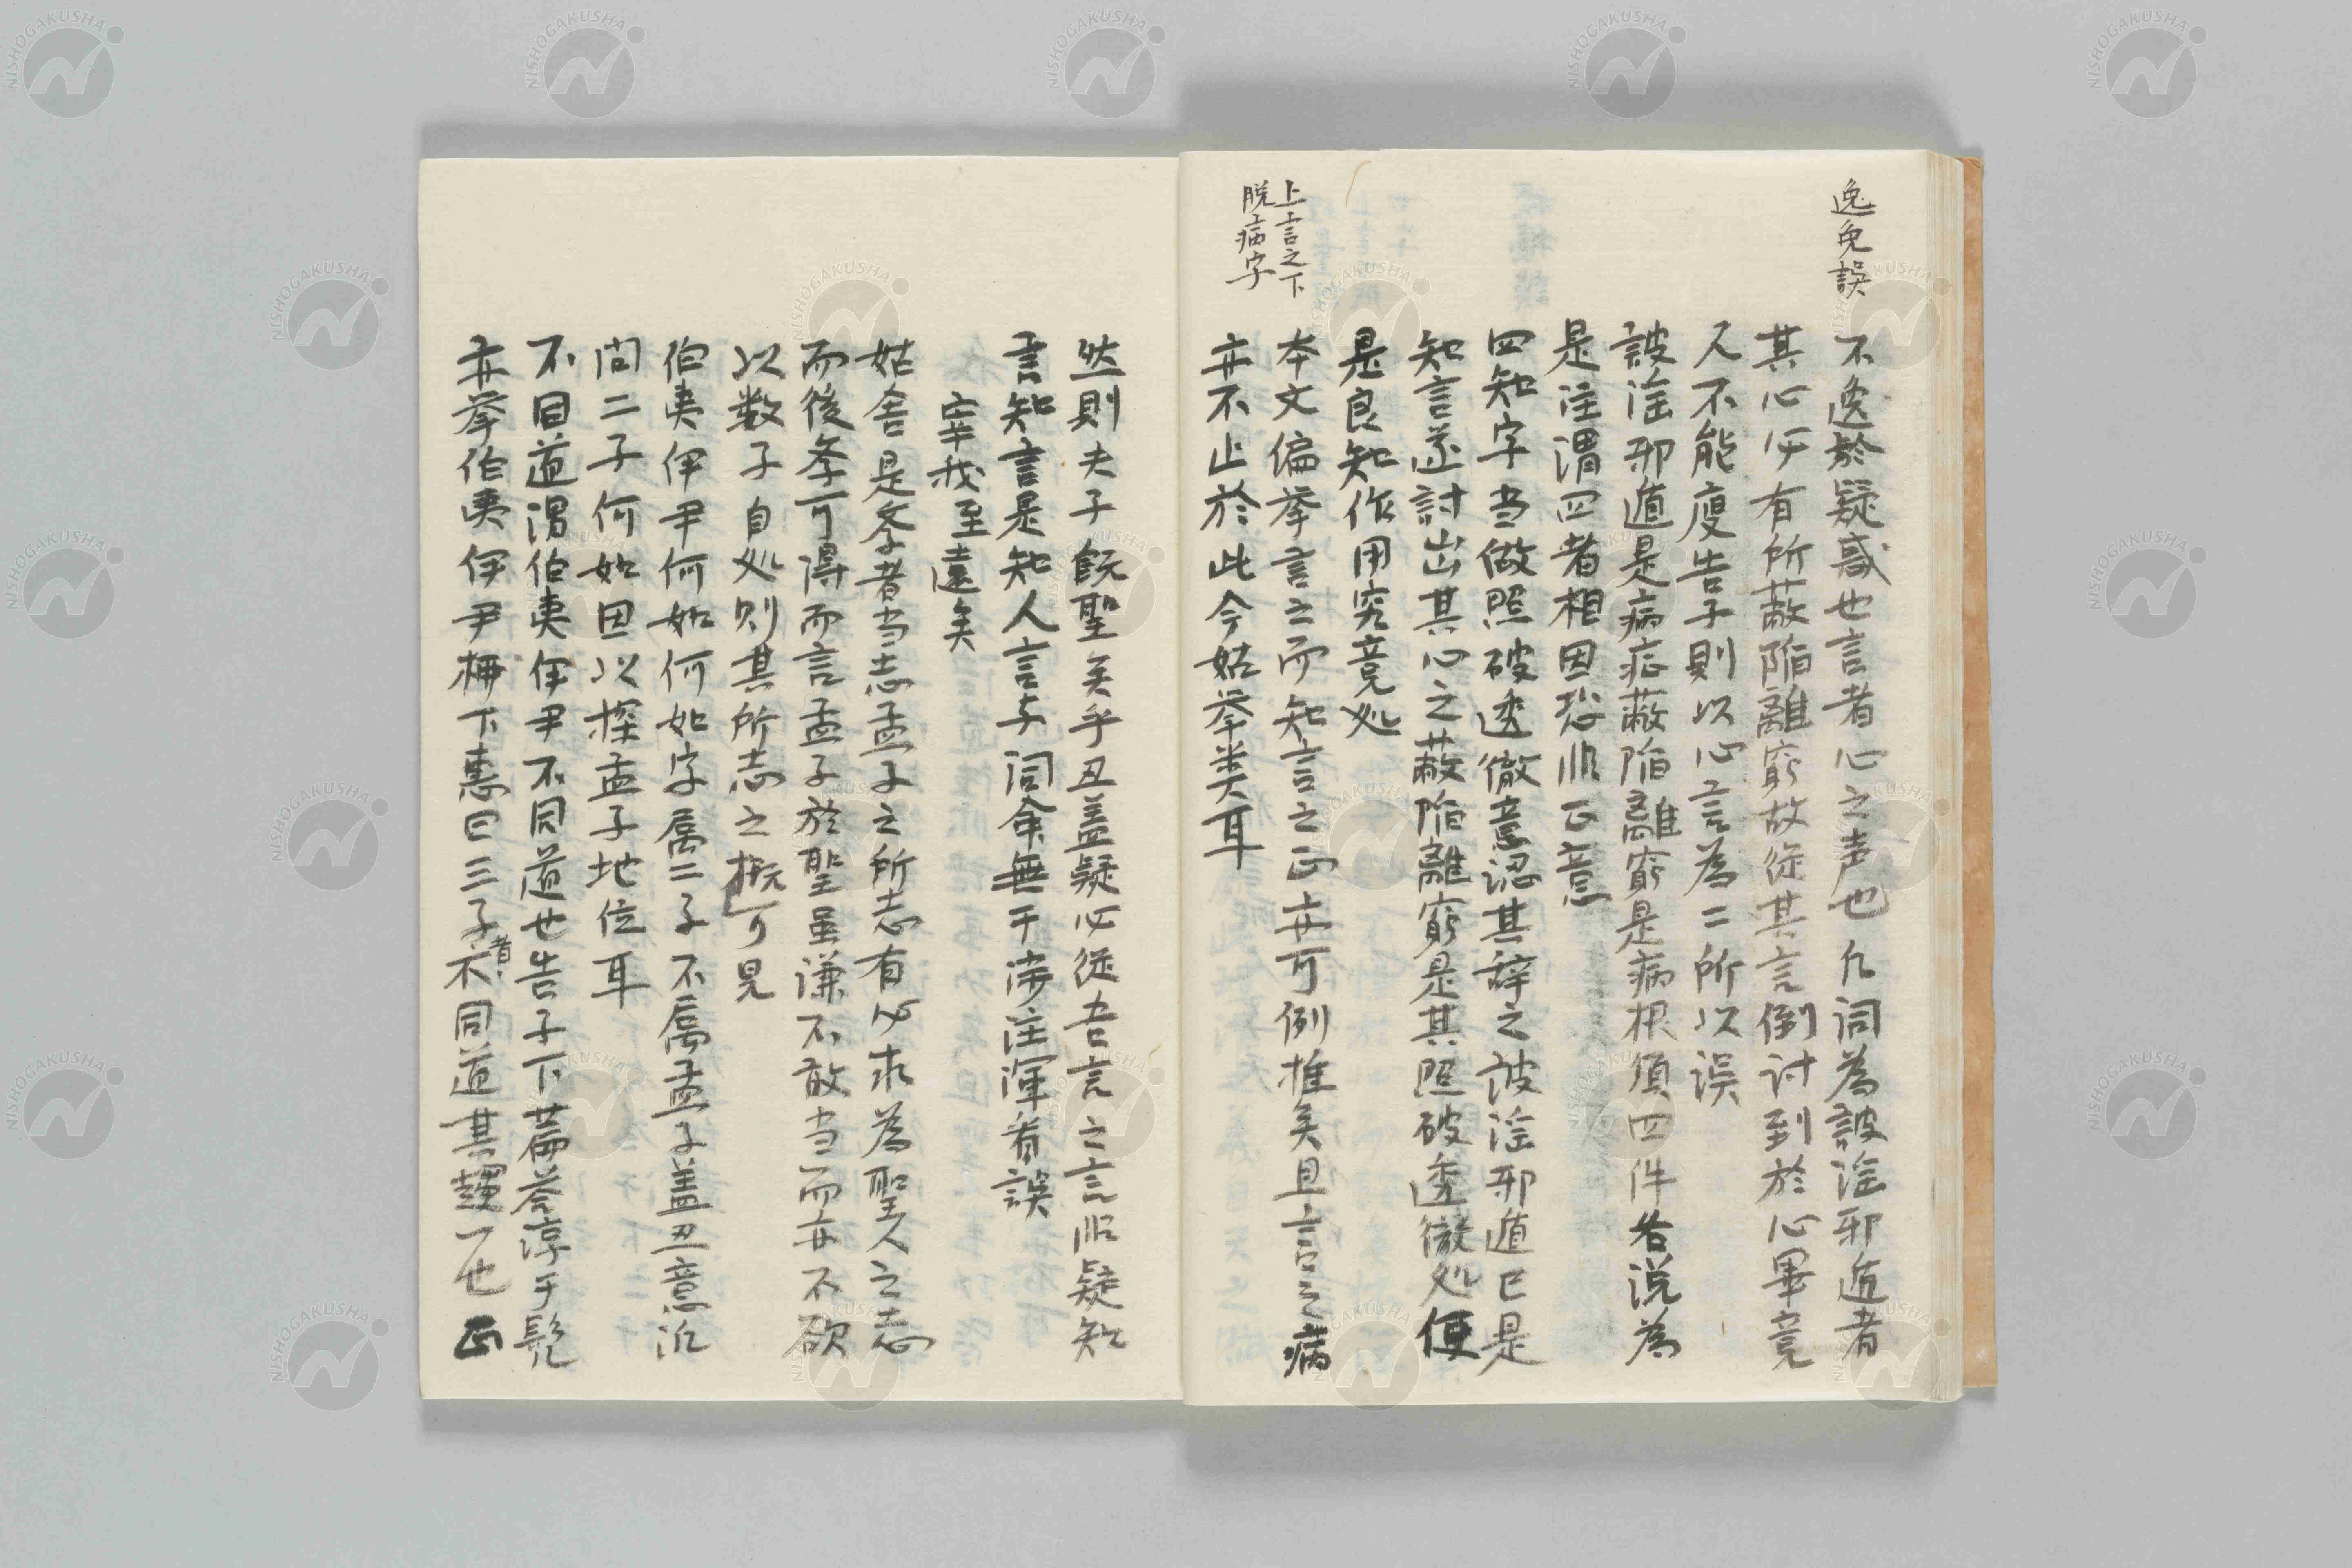 逸免誤
不逸於疑惑也言者心之声也凡詞為詖淫邪遁者
其心必有所蔽陥離窮故従其言倒討到於心畢竟
人不能廋告子則以心言為二所以误
詖淫邪遁是病症蔽陥離窮是病根須四件各说為
是注謂四者相因恐非正意
四知字当做照破透徹意認其辞之詖淫邪遁已是
知言逐討出其心之蔽陥離窮是其照破透徹処便
是良知作用究竟処
上言之下
脱病字
本文偏挙言之而知言之正亦可例推矣且言之病
亦不止於此今姑挙类耳
然則夫子既聖矣乎丑蓋疑必従吾言之言非疑知
言知言是知人言予詞命無干渉注渾看誤
宰我至遠矣
姑舍是冬者当志孟子之所志有必求為聖人之志
而後冬可得而言孟子於聖虽谦不敢当而亦不欲
以数子自処则其所志之概可見
伯夷伊尹何如何如字属二子不属孟子蓋丑意汎
問二子何如因以探孟子地位耳
不同道謂伯夷伊尹不同道也告子下篇荅淳于髡
亦挙伯夷伊尹栁下恵曰三子者不同道其趨一也正
NISHOGAKUSHA